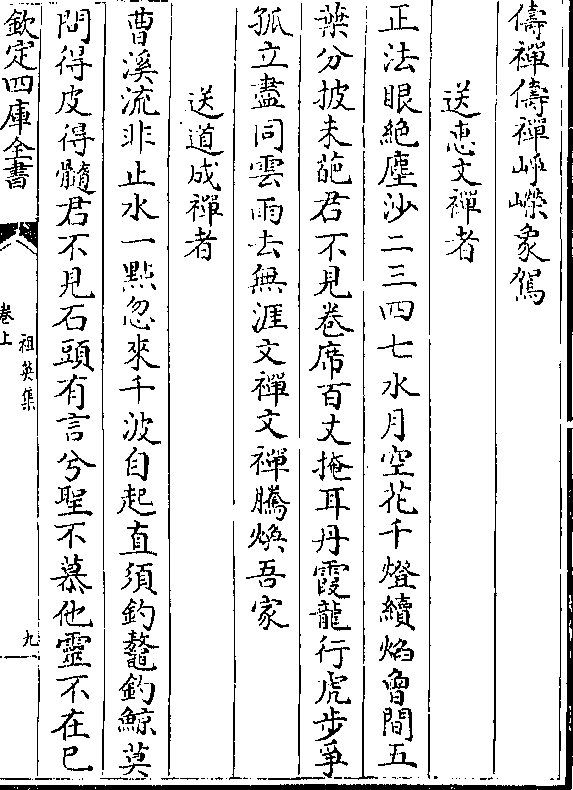 儔禪儔禪崢嶸象駕
送惠文禪者
正法眼絶塵沙二三四七水月空花千燈續焰曾間五
葉分披未葩君不見卷席百丈掩耳丹霞龍行虎步爭
孤立盡同雲雨去無涯文禪文禪騰煥吾家
送道成禪者
曹溪流非止水一點忽來千波自起直須釣鼇釣鯨莫
問得皮得髓君不見石頭有言兮聖不慕他靈不在已
欽定四庫全書
祖英集
卷上
九